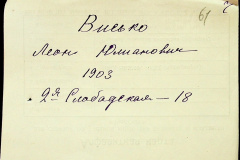 61
Висько
Леон Юлианович
1903
2я Слободская — 18